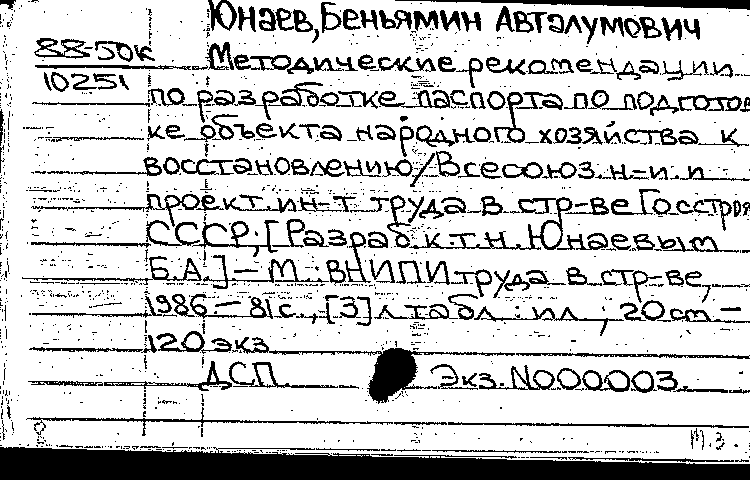 Юнаев, Беньямин Авталумович
88-50к
10251
Методические рекомендации
по разработке паспорта по подготов
ке объекта народного хозяйства к
восстановлению/Всесоюз. н-и. и
проект. ин-т труда в стр-ве Госстроя
СССР; [Разраб. к.т.н. Юнаевым
Б.А.] — М.: ВНИПИ труда в стр-ве,
1986. — 81 с., [3] л. табл. : ил ; 20 см —
120 экз
ДСП. Экз. N000003.
М.3.